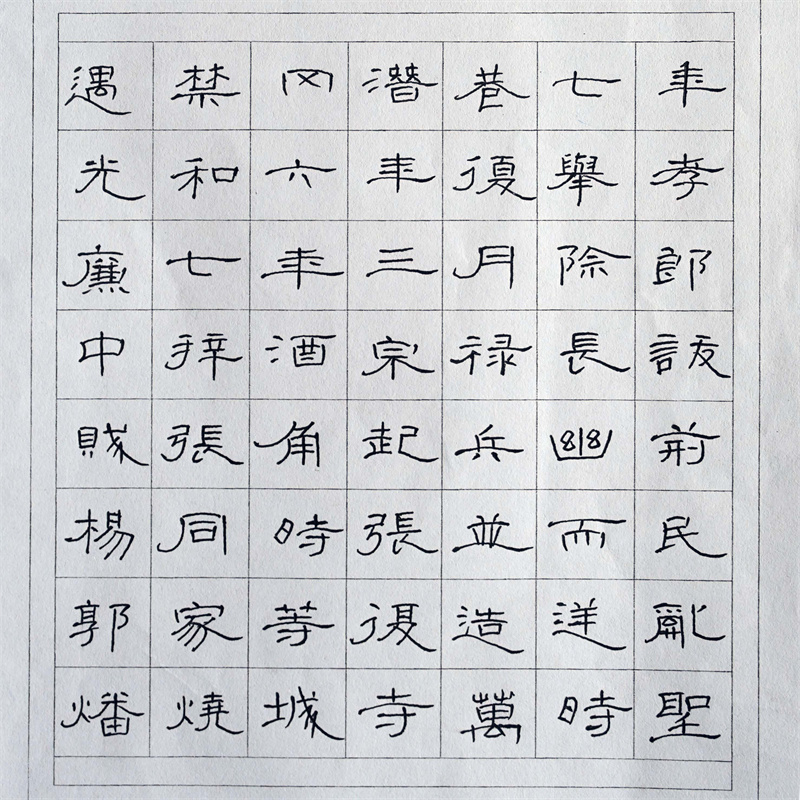 遇禁网潛巷七年
光和六年復舉孝
廉七年三月除郎
中拜酒宗祿長訞
賊張角起兵幽荊
楊同時張並而民
郭家等復造逆亂
燔燒城寺萬時聖